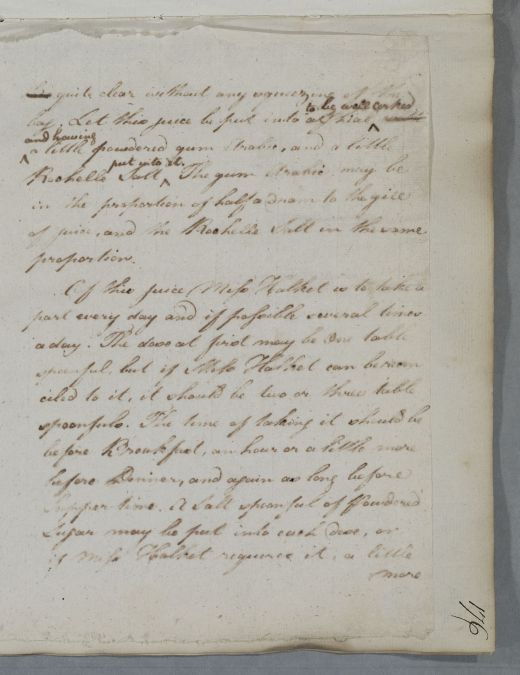 quite clear without any squeezing of the
bag. Let this juice be put into a Phial, to be well corked
and having a little powdered gum Arabic, and a little
Rochelle Salt put into it. The gum Arabic may be
in the proportion of half a dram to the gill
of juice, and the Rochelle Salt in the same
proportion.
Of this juice Miss Halket is to take a
part every day and if possible several times
a day. The dose at first may be one table
spoonful, but if Miss Halket can be recon
ciled to it, it should be two or three table
spoonfuls. The time of taking it should be
before Breakfast, an hour or a little more
before Dinner, and again as long before
Supper time. A Salt spoonful of Powdered
Sugar may be put into each dose, or
if Miss Halket requires it, a little
more
176